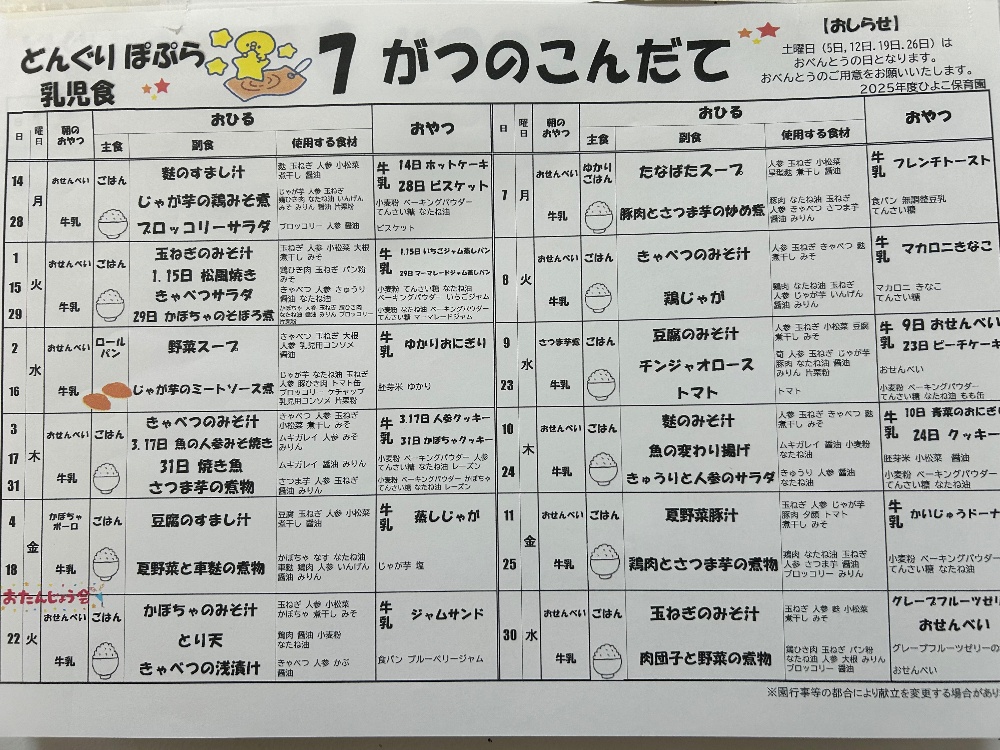 どんぐり ぽぷら
乳児食
7 がつのこんだて
【おしらせ】
土曜日（5日,12日.19日.26日）は
おべんとうの日となります。
おべんとうのご用意をお願いいたします。
2025年度ひよこ保育園
日 曜日 朝のおやつ おひる おやつ
主食 副食 使用する食材
14 28 月
おせんべい 牛乳
ごはん
麩のすまし汁
麩 玉ねぎ 人参 小松菜
煮干し 醤油
じゃが芋の鶏みそ煮
じゃが芋 人参 玉ねぎ
鶏ひき肉 なたね油 いんげん
みそ みりん 醤油 片栗粉
ブロッコリーサラダ
ブロッコリー 人参 醤油
牛乳
14日 ホットケーキ
28日 ビスケット
小麦粉 ベーキングパウダー
てんさい糖 なたね油
ビスケット
1 15 29 火
おせんべい 牛乳
ごはん
玉ねぎのみそ汁
玉ねぎ 人参 小松菜 大根
煮干し みそ
1.15日 松風焼き
鶏ひき肉 玉ねぎ パン粉
みそ
きゃべつサラダ
きゃべつ 人参 きゅうり
醤油 なたね油
29日 かぼちゃのそぼろ煮
牛乳
1.15日 いちごジャム蒸しパン
29日 マーマレードジャム蒸しパン
小麦粉 てんさい糖 なたね油
ベーキングパウダー いちごジャム
小麦粉 なたね油 ベーキングパウダー
てんさい糖 マーマレードジャム
2 16 水
おせんべい 牛乳
ロールパン
野菜スープ
きゃべつ 玉ねぎ 大根
人参 乳児用コンソメ
醤油
じゃが芋のミートソース煮
じゃが芋 なたね油 玉ねぎ
人参 豚ひき肉 トマト缶
ブロッコリー ケチャップ
乳児用コンソメ 片栗粉
牛乳
ゆかりおにぎり
胚芽米 ゆかり
3 17 31 木
おせんべい 牛乳
ごはん
きゃべつのみそ汁
きゃべつ 人参 玉ねぎ
小松菜 煮干し みそ
3.17日 魚の人参みそ焼き
ムキガレイ 人参 みそ
みりん
31日 焼き魚
ムキガレイ 醤油 みりん
さつま芋の煮物
さつま芋 人参 いんげん
醤油 みりん
牛乳
3.17日 人参クッキー
31日 かぼちゃクッキー
小麦粉 ベーキングパウダー 人参
てんさい糖 なたね油 レーズン
小麦粉 ベーキングパウダー かぼちゃ
てんさい糖 なたね油 レーズン
4 18 金
かぼちゃボーロ 牛乳
ごはん
豆腐のすまし汁
豆腐 玉ねぎ 人参 小松菜
煮干し 醤油
夏野菜と車麩の煮物
かぼちゃ なす なたね油
車麩 鶏肉 人参 いんげん
醤油 みりん
牛乳
蒸しじゃが
じゃが芋 塩
おたんじょう会
22 火
おせんべい 牛乳
ごはん
かぼちゃのみそ汁
玉ねぎ 人参 小松菜
かぼちゃ 煮干し みそ
とり天
鶏肉 醤油 小麦粉
なたね油
きゃべつの浅漬け
きゃべつ 人参 かぶ
醤油
牛乳
ジャムサンド
食パン ブルーベリージャム
日 曜日 朝のおやつ おひる おやつ
主食 副食 使用する食材
7 月
おせんべい 牛乳
ゆかりごはん
たなばたスープ
人参 玉ねぎ 小松菜
豚肉とさつま芋の炒め煮
豚肉 なたね油 玉ねぎ
人参 きゃべつ さつま芋
醤油 みりん
牛乳
フレンチトースト
食パン 無調整豆乳
てんさい糖
8 火
おせんべい 牛乳
ごはん
きゃべつのみそ汁
人参 玉ねぎ きゃべつ 麩
煮干し みそ
鶏じゃが
鶏肉 なたね油 玉ねぎ
人参 じゃが芋 いんげん
醤油 みりん
牛乳
マカロニきなこ
マカロニ きなこ
てんさい糖
9 23 水
さつま芋煮 牛乳
ごはん
豆腐のみそ汁
人参 玉ねぎ 小松菜 豆腐
煮干し みそ
チンジャオロース
筍 人参 玉ねぎ じゃが芋
豚肉 なたね油 醤油
みりん 片栗粉
トマト
トマト
牛乳
9日 おせんべい
23日 ピーチケーキ
おせんべい
小麦粉 ベーキングパウダー
てんさい糖 なたね油 もも缶
10 24 木
おせんべい 牛乳
ごはん
麩のみそ汁
人参 玉ねぎ きゃべつ 麩
煮干し みそ
魚の変わり揚げ
ムキガレイ 醤油 小麦粉
なたね油 みそ
きゅうりと人参のサラダ
きゅうり 人参 醤油
なたね油
牛乳
10日 青菜のおにぎり
24日 クッキー
胚芽米 小松菜 醤油
小麦粉 ベーキングパウダー
てんさい糖 なたね油
11 25 金
おせんべい 牛乳
ごはん
夏野菜豚汁
玉ねぎ 人参 じゃが芋
豚肉 夕顔 トマト
煮干し みそ
鶏肉とさつま芋の煮物
鶏肉 なたね油 玉ねぎ
人参 さつま芋 醤油
ブロッコリー みりん
牛乳
かいじゅうドーナ
小麦粉 ベーキングパウダー
てんさい糖 なたね油
30 水
おせんべい 牛乳
ごはん
玉ねぎのみそ汁
玉ねぎ 人参 麩 小松菜
煮干し みそ
肉団子と野菜の煮物
鶏ひき肉 玉ねぎ パン粉
なたね油 人参 大根 みりん
ブロッコリー 醤油
グレープフルーツゼリ
おせんべい
グレープフルーツゼリーの
おせんべい
※園行事等の都合により献立を変更する場合があり